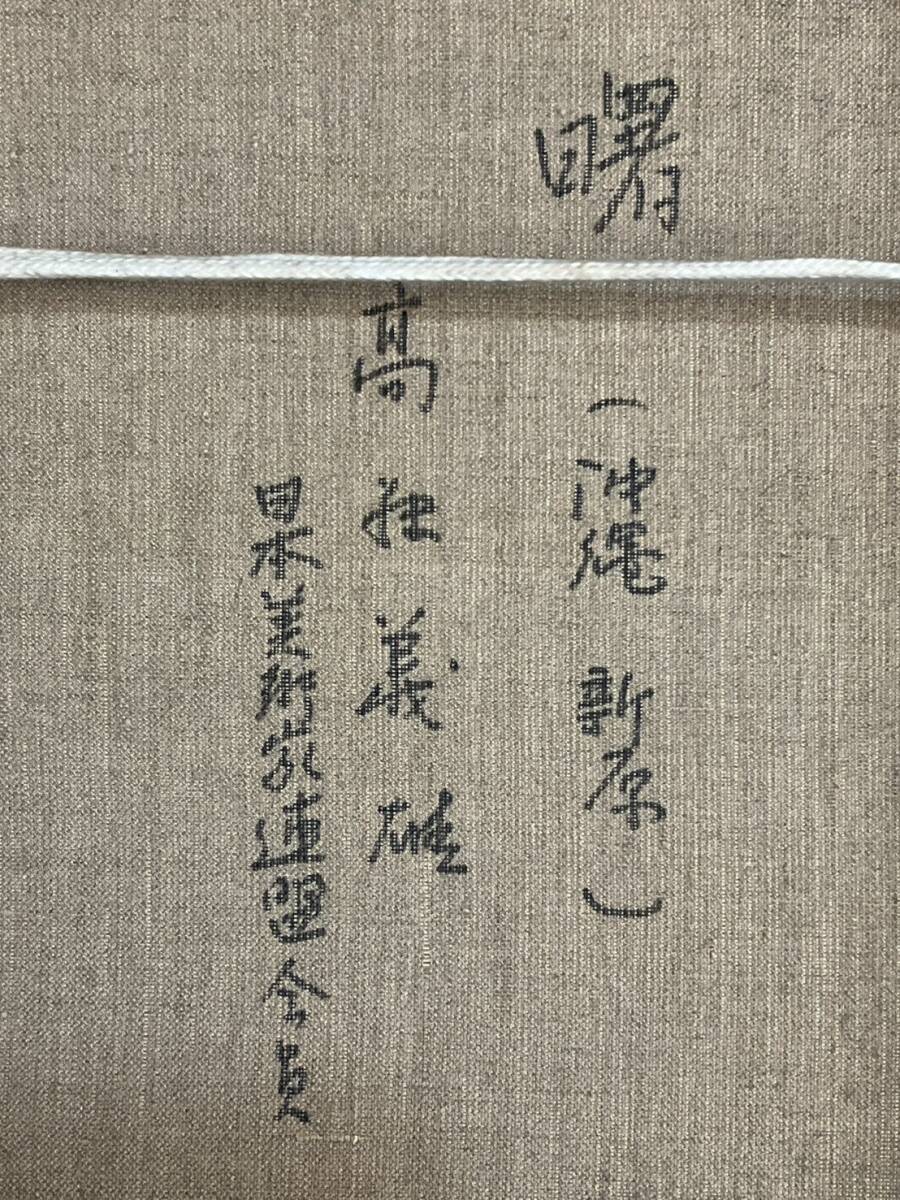 曙
(沖縄 新原)
高松義雄
日本美術家連盟会員